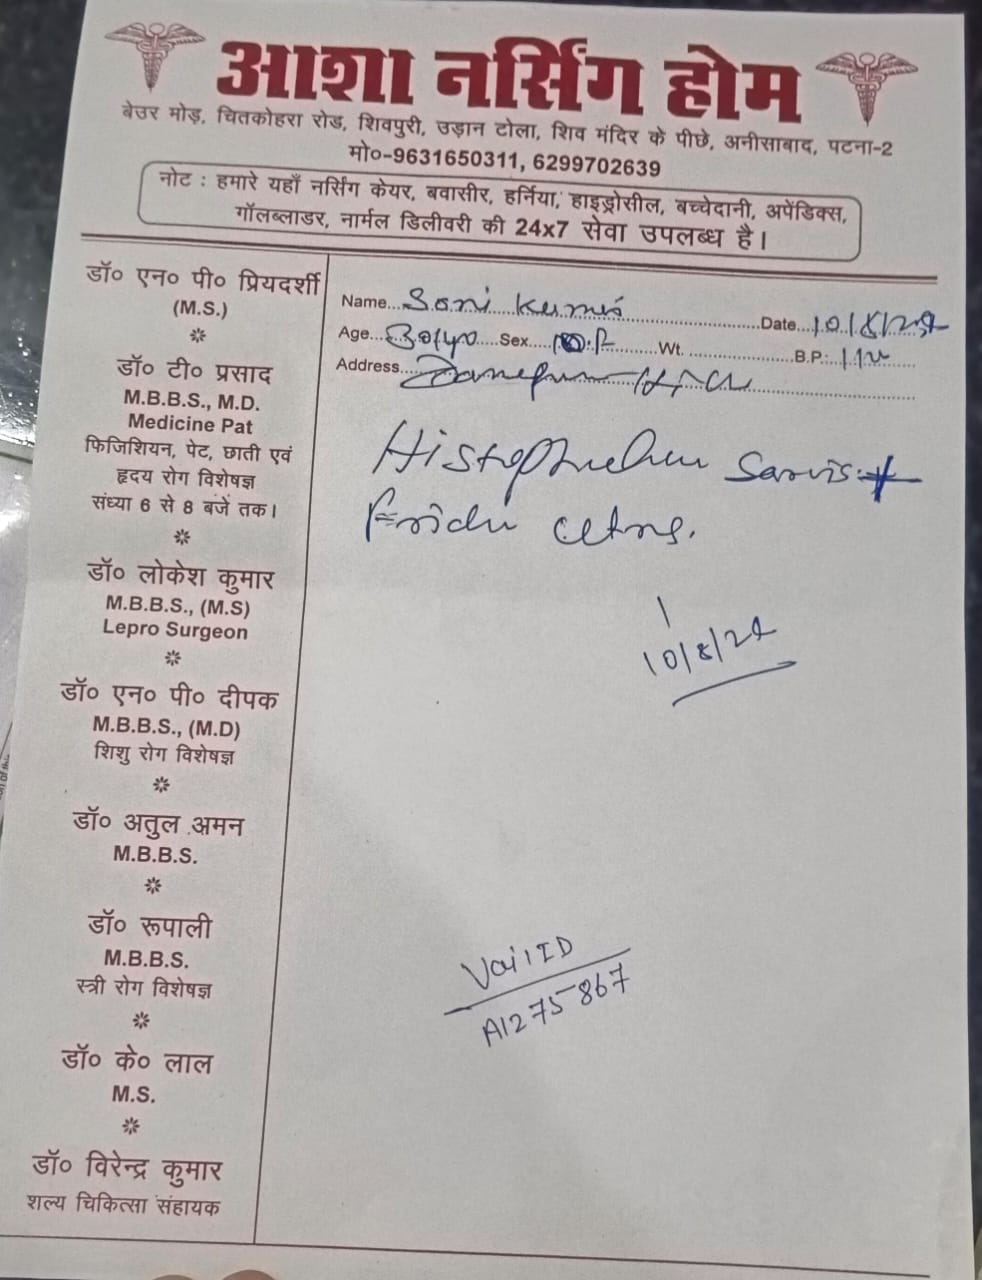 आशा नर्सिंग होम
बेउर मोड़, चितकोहरा रोड, शिवपुरी, उड़ान टोला, शिव मंदिर के पीछे, अनीसाबाद, पटना-2
मो०-9631650311, 6299702639
नोट : हमारे यहाँ नर्सिंग केयर, बवासीर, हर्निया, हाइड्रोसील, बच्चेदानी, अपेंडिक्स,
गॉलब्लाडर, नार्मल डिलीवरी की 24x7 सेवा उपलब्ध है।
डॉ० एन० पी० प्रियदर्शी
(M.S.)
डॉ० टी० प्रसाद
M.B.B.S., M.D.
Medicine Pat
फिजिशियन, पेट, छाती एवं
हृदय रोग विशेषज्ञ
संध्या 6 से 8 बजे तक।
डॉ० लोकेश कुमार
M.B.B.S., (M.S)
Lepro Surgeon
डॉ० एन० पी० दीपक
M.B.B.S., (M.D)
शिशु रोग विशेषज्ञ
डॉ० अतुल अमन
M.B.B.S.
डॉ० रूपाली
M.B.B.S.
स्त्री रोग विशेषज्ञ
डॉ० के० लाल
M.S.
डॉ० विरेन्द्र कुमार
शल्य चिकित्सा संहायक
Name... Soni ...Date...
Age... Sex... Wt. ...B.P.:
Address...
10/8/22
Vail ID
A1275867